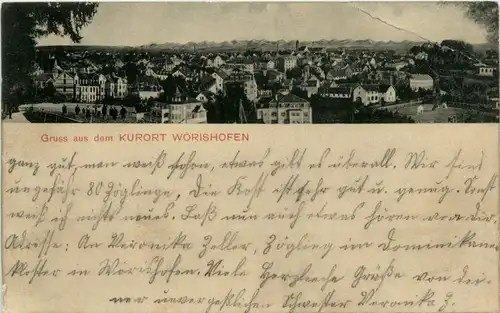 Gruss aus dem KURORT WÖRISHOFEN
ganz gut, man weiß schon, etwas gibt es überall. Wir sind
ungefähr 80 Zöglinge. Die Kost ist sehr gut u. genug. Sonst
weiß ich nichts neues. Laß nun auch etwas hören von dir.
Adresse: An Veronika Zeller, Zögling im Dominikane
kloster in Wörishofen. Viele Herzliche Grüße von dei-
ner unvergeßlichen Schwester Veronika Z.